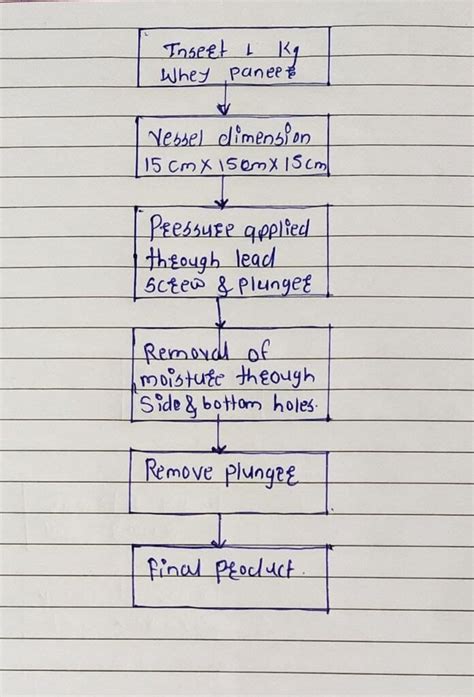 Insert 1 Kg
Whey paneer
Vessel dimension
15 cm X 15 cm X 15 cm
Pressure applied
through lead
screw & plunger
Removal of
moisture through
Side & bottom holes.
Remove plunger
Final product.